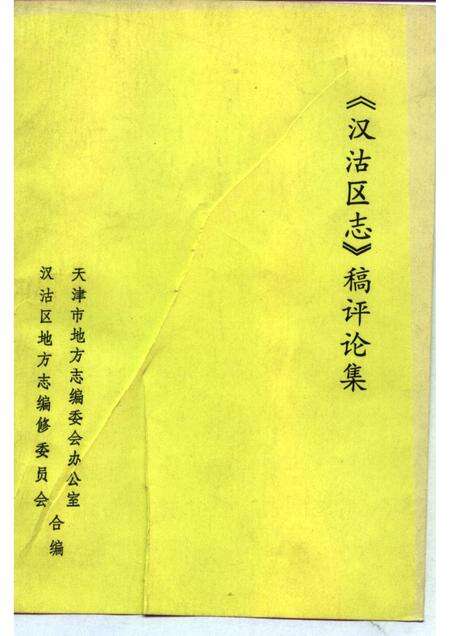 《汉沽区志》稿评论集
天津市地方志编委会办公室
汉沽区地方志编修委员会
合编